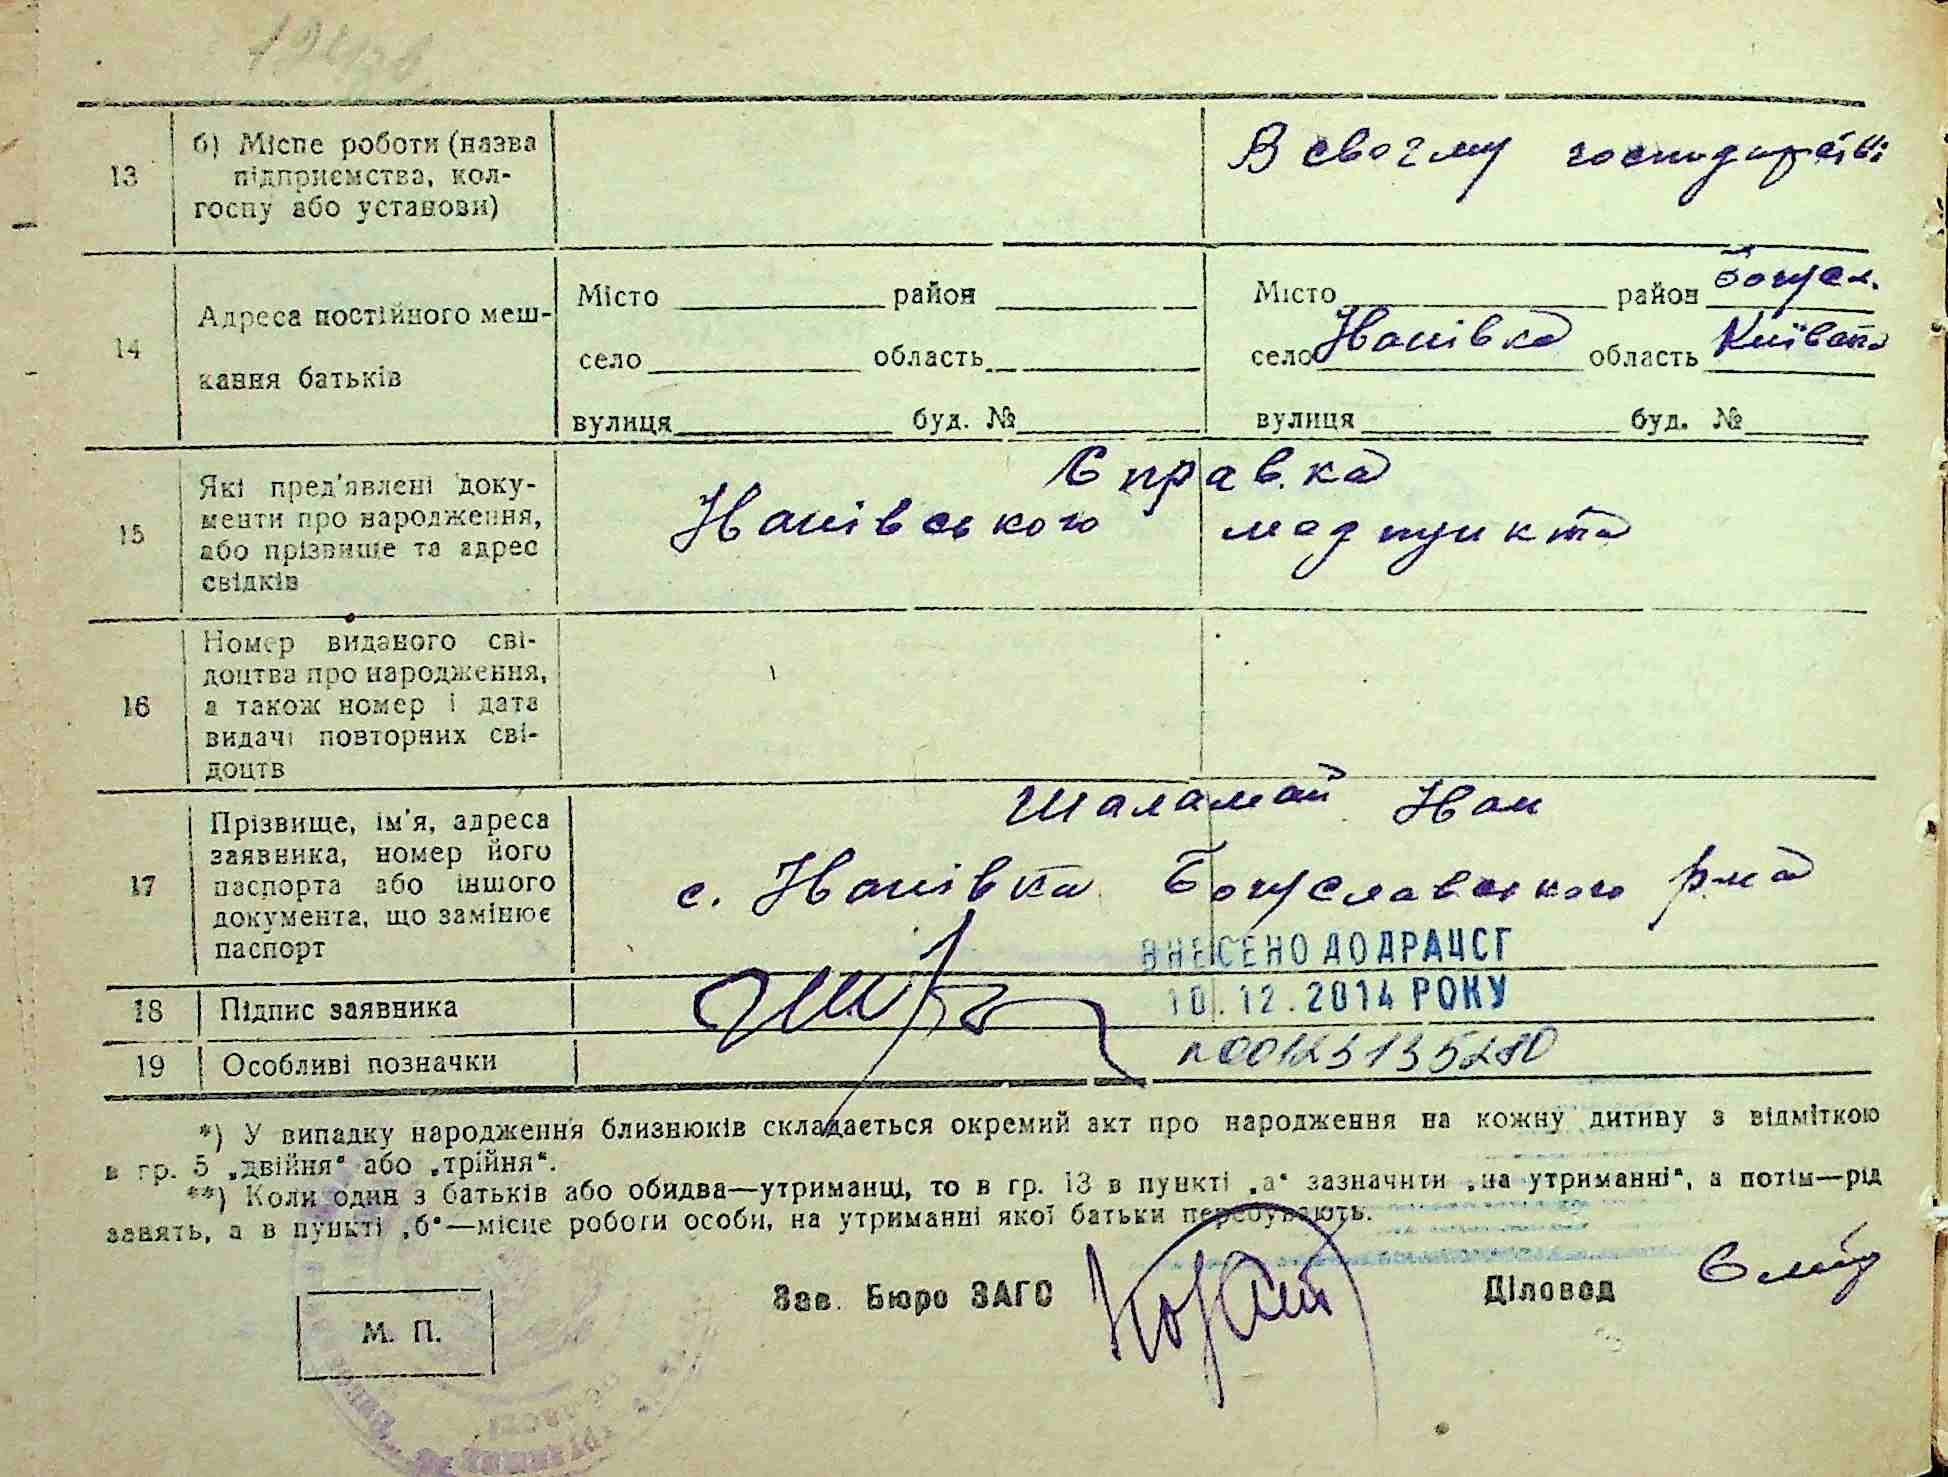 13
б) Місце роботи (назва
підприємства, кол-
госпу або установи)
В своєму господарстві
14
Адреса постійного меш-
кання батьків
Місто район
село область
вулиця буд. №
Місто район Богусл.
село Іванівка область Київська
вулиця буд. №
15
Які пред'явлені доку-
менти про народження,
або прізвище та адрес
свідків
Справка
Іванівського медпункта
16
Номер виданого сві-
доцтва про народження,
а також номер і дата
видачі повторних сві-
доцтв
17
Прізвище, ім'я, адреса
заявника, номер його
паспорта або іншого
документа, що замінює
паспорт
Шаламай Іван
с. Іванівка Богуславського р-на
ВНЕСЕНО ДО ДРАЦСГ
10.12.2014 РОКУ
18 Підпис заявника
19 Особливі позначки
n00123135280
*) У випадку народження близнюків складається окремий акт про народження на кожну дитину з відміткою
в гр. 5 „двійня“ або „трійня“.
**) Коли один з батьків або обидва—утриманці, то в гр. 13 в пункті „а“ зазначити „на утриманні“, а потім—рід
занять, а в пункті „б“—місце роботи особи, на утриманні якої батьки перебувають.
Зав. Бюро ЗАГС
Діловод
М. П.